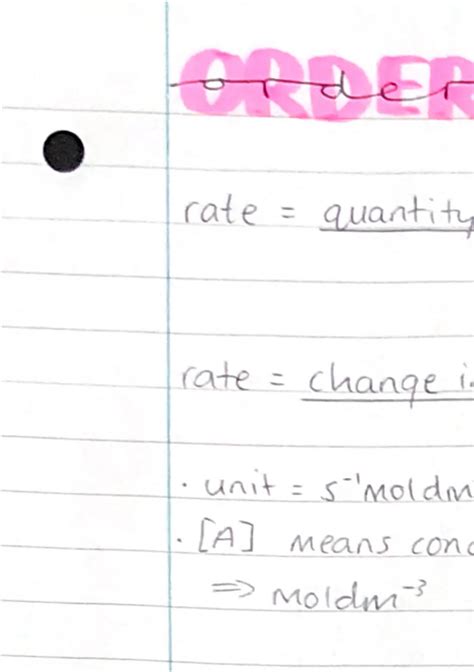 ORDER
order
rate = quantity
rate = change i
· unit = s⁻¹moldm
· [A] means conc
⇒ moldm⁻³